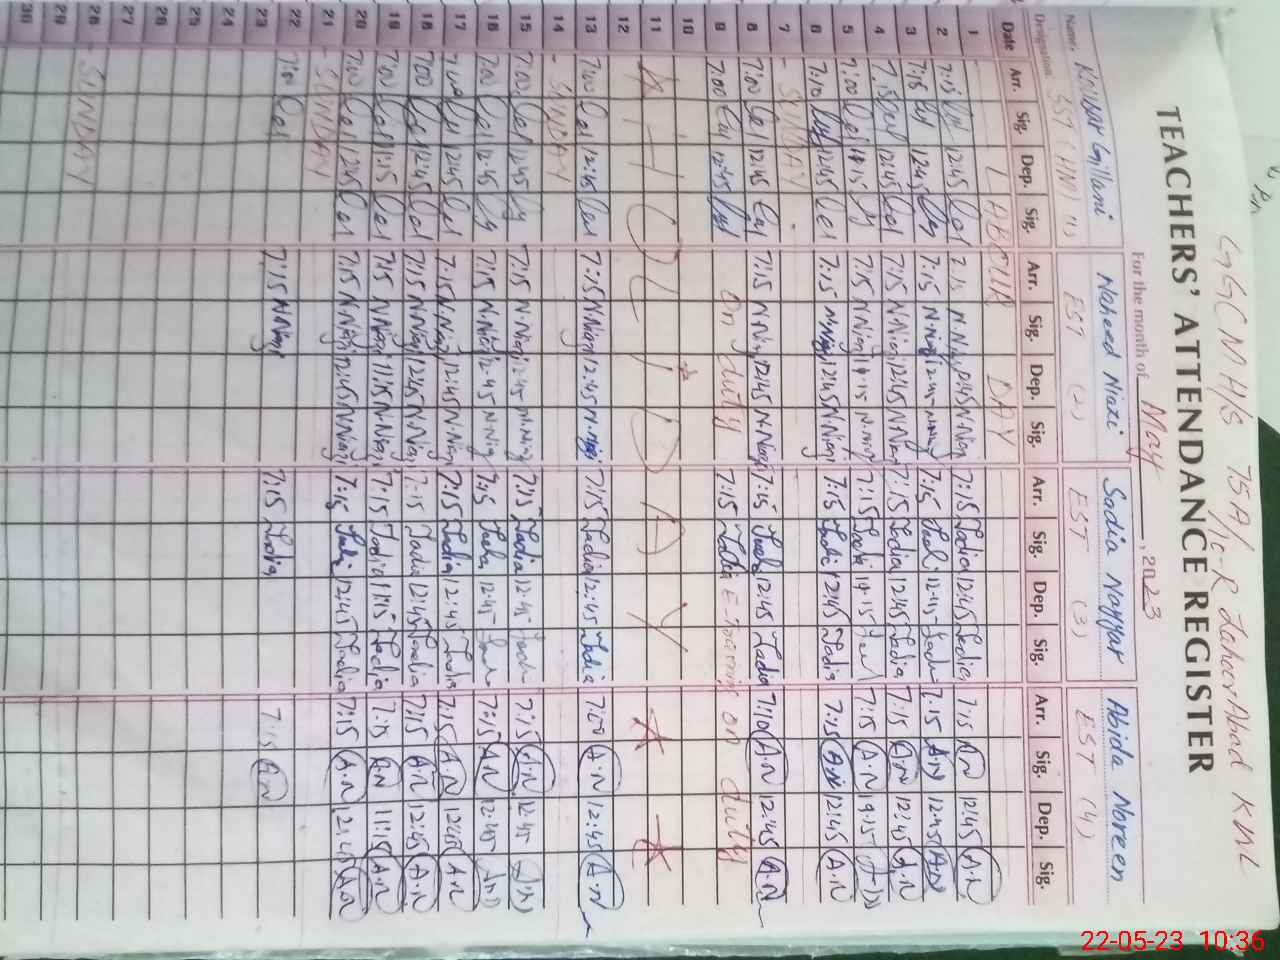 GGCMHS 75A/1C-R Zahoor Abad KWL
TEACHERS' ATTENDANCE REGISTER
For the month of May, 2023
Name: Kousar Gillani Naheed Niazi Sadia Nayyar Abida Noreen
Designation: SST (HM) (1) EST (2) EST (3) EST (4)
Date Arr. Sig. Dep. Sig. Arr. Sig. Dep. Sig. Arr. Sig. Dep. Sig. Arr. Sig. Dep. Sig.
1 LABOUR DAY
2 7:15 12:45 7:15 N.Niazi 12:45 N.Niazi 7:15 Sadia 12:45 Sadia 7:15 A.N 12:45 A.N
3 7:15 12:45 7:15 N.Niazi 12:45 N.Niazi 7:15 Sadia 12:45 Sadia 7:15 A.N 12:45 A.N
4 7:15 12:45 7:15 N.Niazi 12:45 N.Niazi 7:15 Sadia 12:45 Sadia 7:15 A.N 12:45 A.N
5 7:00 7:15 N.Niazi N.Niazi 7:15 Sadia 7:15 A.N
6 7:10 12:45 7:15 N.Niazi 12:45 N.Niazi 7:15 Sadia 12:45 Sadia 7:15 A.N 12:45 A.N
7 - SUNDAY
8 7:00 12:45 7:15 N.Niazi 12:45 N.Niazi 7:15 Sadia 12:45 Sadia 7:10 A.N 12:45 A.N
9 7:00 12:45 On duty 7:15 Sadia on duty
10
11 HOLIDAY
12
13 7:00 12:45 7:15 N.Niazi 12:45 N.Niazi 7:15 Sadia 12:45 Sadia 7:20 A.N 12:45 A.N
14 - SUNDAY
15 7:00 12:45 7:15 N.Niazi 12:45 N.Niazi 7:15 Sadia 12:45 Sadia 7:15 A.N 12:45 A.N
16 7:00 12:45 7:15 N.Niazi 12:45 N.Niazi 7:15 Sadia 12:45 Sadia 7:15 A.N 12:45 A.N
17 7:00 12:45 7:15 N.Niazi 12:45 N.Niazi 7:15 Sadia 12:45 Sadia 7:15 A.N 12:45 A.N
18 7:00 12:45 7:15 N.Niazi 12:45 N.Niazi 7:15 Sadia 12:45 Sadia 7:15 A.N 12:45 A.N
19 7:00 11:15 7:15 N.Niazi 11:15 N.Niazi 7:15 Sadia 11:15 Sadia 7:15 A.N 11:15 A.N
20 7:00 12:45 7:15 N.Niazi 12:45 N.Niazi 7:15 Sadia 12:45 Sadia 7:15 A.N 12:45 A.N
21 - SUNDAY
22 7:00 7:15 N.Niazi 7:15 Sadia 7:15 A.N
23
24
25
26
27
28 SUNDAY
29
30
22-05-23 10:36